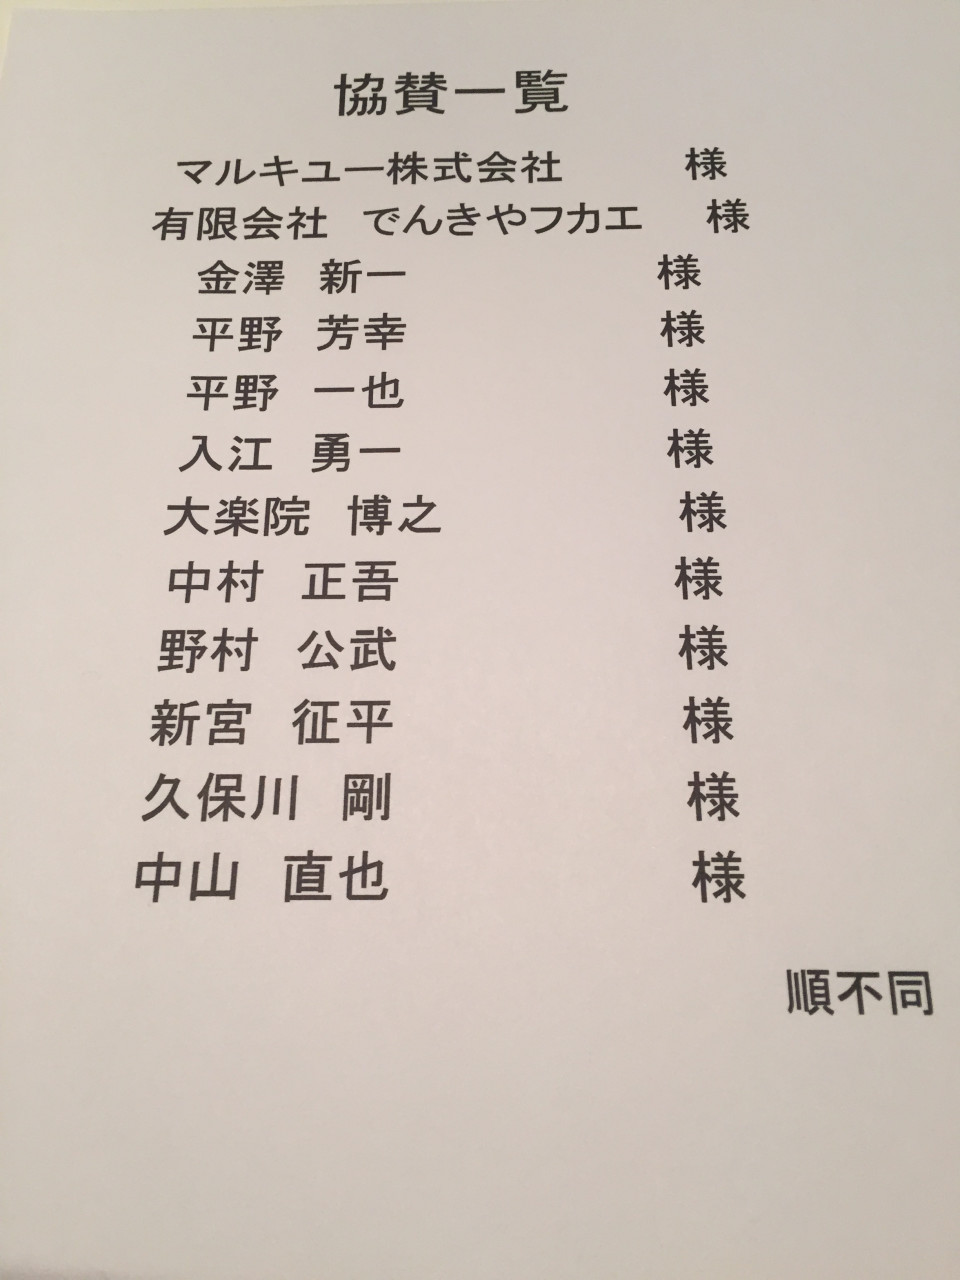 協賛一覧
マルキユー株式会社 様
有限会社 でんきやフカエ 様
金澤 新一 様
平野 芳幸 様
平野 一也 様
入江 勇一 様
大楽院 博之 様
中村 正吾 様
野村 公武 様
新宮 征平 様
久保川 剛 様
中山 直也 様
順不同